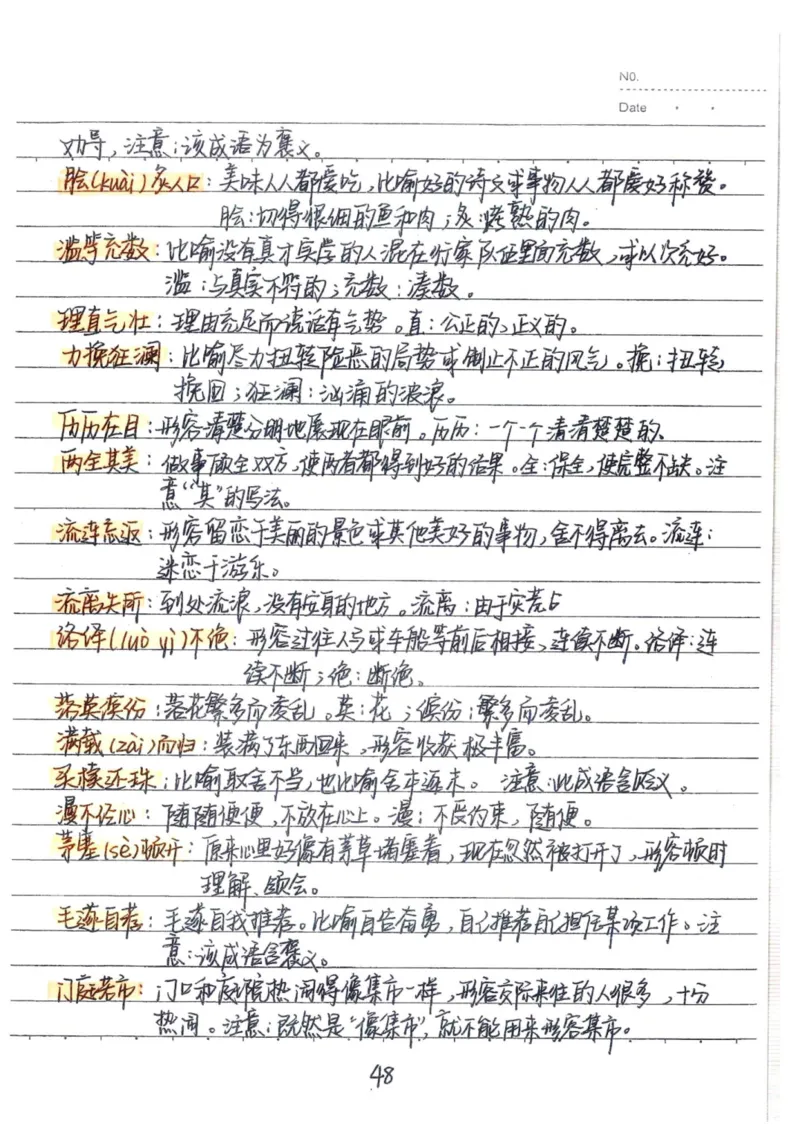 N0.
Date
劝导,注意:该成语为褒义。
脍(kuài)炙人口:美味人人都爱吃,比喻好的诗文或事物人人都爱好称赞。
脍:切得很细的鱼和肉;炙:烤熟的肉。
滥竽充数:比喻没有真才实学的人混在行家队伍里面充数,或以次充好。
滥:与真实不符的;充数:凑数。
理直气壮:理由充足而说话有气势。直:公正的、正义的。
力挽狂澜:比喻尽力扭转险恶的局势或制止不正的风气。挽:扭转,
挽回;狂澜:汹涌的波浪。
历历在目:形容清楚分明地展现在眼前。历历:一个一个清清楚楚的。
两全其美:做事顾全双方,使两者都得到好的结果。全:保全,使完整不缺。注
意“其”的写法。
流连忘返:形容留恋于美丽的景色或其他美好的事物,舍不得离去。流连:
迷恋于游乐。
流离失所:到处流浪,没有安身的地方。流离:由于灾荒占
络绎(luò yì)不绝:形容过往人马或车船等前后相接,连续不断。络绎:连
续不断;绝:断绝。
落英缤纷:落花繁多而凌乱。英:花;缤纷:繁多而凌乱。
满载(zài)而归:装满了东西回来,形容收获极丰富。
买椟还珠:比喻取舍不当,也比喻舍本逐末。 注意:此成语含贬义。
漫不经心:随随便便,不放在心上。漫:不受约束,随便。
茅塞(sè)顿开:原来心里好像有茅草堵塞着,现在忽然被打开了,形容顿时
理解、领会。
毛遂自荐:毛遂自我推荐。比喻自告奋勇,自己推荐自己担任某项工作。注
意:该成语含褒义。
门庭若市:门口和庭院热闹得像集市一样,形容交际来往的人很多,十分
热闹。注意:既然是“像集市”,就不能用来形容集市。
48